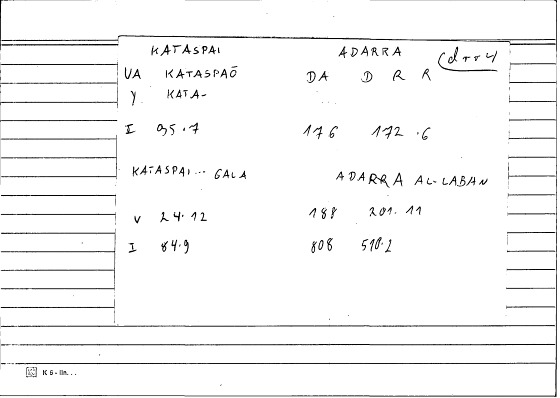 KATASPAI ADARRA (drr4
VA KATASPAŌ DA D R R
Y KATA-
I 95.7 176 172.6
KATASPAI... GALA ADARRA AL-LABAN
V 24.12 188 201.11
I 84.9 808 510.2
K 6 - lin...